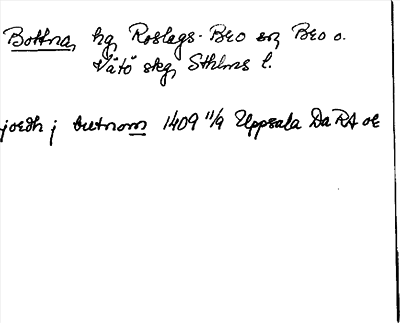 Bottna, hg, Roslags-Bro sn, Bro o.
Vätö skg, Sthlms l.
jordh j butnom 1409 11/9 Uppsala Da RA or